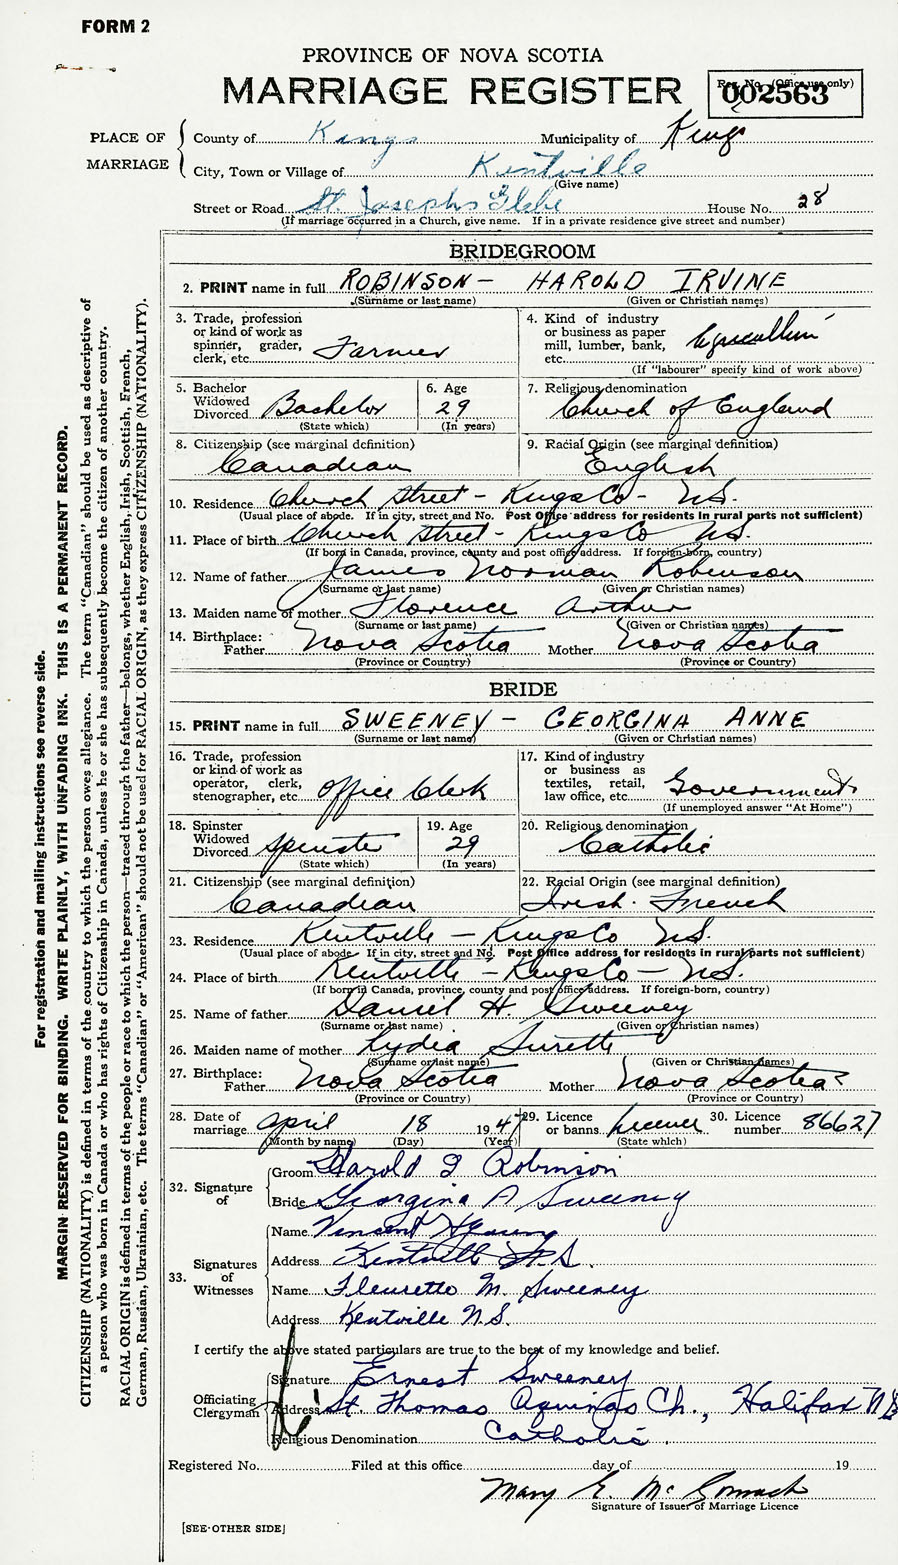 FORM 2
PROVINCE OF NOVA SCOTIA
MARRIAGE REGISTER
Reg. No. (Office use only)
002563
PLACE OF MARRIAGE
County of Kings Municipality of Kings
City, Town or Village of Kentville
(Give name)
Street or Road St. Josephs Glebe House No. 28
(If marriage occurred in a Church, give name. If in a private residence give street and number)
BRIDEGROOM
2. PRINT name in full ROBINSON - HAROLD IRVINE
(Surname or last name) (Given or Christian names)
3. Trade, profession or kind of work as spinner, grader, clerk, etc. Farmer
4. Kind of industry or business as paper mill, lumber, bank, etc. Agriculture
(If "labourer" specify kind of work above)
5. Bachelor Widowed Divorced Bachelor
(State which)
6. Age 29
(In years)
7. Religious denomination
Church of England
8. Citizenship (see marginal definition)
Canadian
9. Racial Origin (see marginal definition)
English
10. Residence Church Street - Kings Co - N.S.
(Usual place of abode. If in city, street and No. Post Office address for residents in rural parts not sufficient)
11. Place of birth Church Street - Kings Co N.S.
(If born in Canada, province, county and post office address. If foreign-born, country)
12. Name of father James Norman Robinson
(Surname or last name) (Given or Christian names)
13. Maiden name of mother Florence Arthur
(Surname or last name) (Given or Christian names)
14. Birthplace: Father Nova Scotia Mother Nova Scotia
(Province or Country) (Province or Country)
BRIDE
15. PRINT name in full SWEENEY - GEORGINA ANNE
(Surname or last name) (Given or Christian names)
16. Trade, profession or kind of work as operator, clerk, stenographer, etc. Office Clerk
17. Kind of industry or business as textiles, retail, law office, etc. Government
(If unemployed answer "At Home")
18. Spinster Widowed Divorced Spinster
(State which)
19. Age 29
(In years)
20. Religious denomination
Catholic
21. Citizenship (see marginal definition)
Canadian
22. Racial Origin (see marginal definition)
Irish. French
23. Residence Kentville - Kings Co N.S.
(Usual place of abode. If in city, street and No. Post Office address for residents in rural parts not sufficient)
24. Place of birth Kentville - Kings Co - N.S.
(If born in Canada, province, county and post office address. If foreign-born, country)
25. Name of father Daniel H. Sweeney
(Surname or last name) (Given or Christian names)
26. Maiden name of mother Lydia Surette
(Surname or last name) (Given or Christian names)
27. Birthplace: Father Nova Scotia Mother Nova Scotia
(Province or Country) (Province or Country)
28. Date of marriage April 18 1947
(Month by name) (Day) (Year)
29. Licence or banns Licence
(State which)
30. Licence number 86627
32. Signature of
Groom Harold I Robinson
Bride Georgina A Sweeney
33. Signatures of Witnesses
Name Vincent
Address Kentville N.S.
Name Fleurette M. Sweeney
Address Kentville N.S.
I certify the above stated particulars are true to the best of my knowledge and belief.
Officiating Clergyman
Signature Ernest Sweeney
Address St. Thomas Aquinas Ch., Halifax N.S
Religious Denomination Catholic.
Registered No. Filed at this office day of 19
Mary E. McCormack
Signature of Issuer of Marriage Licence
[SEE OTHER SIDE]
For registration and mailing instructions see reverse side.
MARGIN RESERVED FOR BINDING. WRITE PLAINLY, WITH UNFADING INK. THIS IS A PERMANENT RECORD.
CITIZENSHIP (NATIONALITY) is defined in terms of the country to which the person owes allegiance. The term "Canadian" should be used as descriptive of
a person who was born in Canada or who has rights of Citizenship in Canada, unless he or she has subsequently become the citizen of another country.
RACIAL ORIGIN is defined in terms of the people or race to which the person—traced through the father—belongs, whether English, Irish, Scottish, French,
German, Russian, Ukrainian, etc. The terms "Canadian" or "American" should not be used for RACIAL ORIGIN, as they express CITIZENSHIP (NATIONALITY).